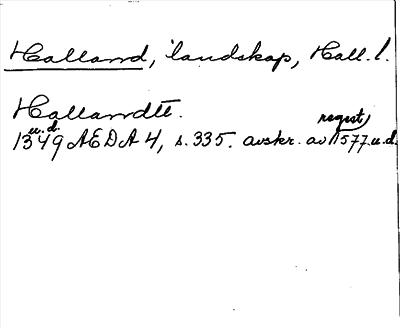 Halland, landskap, Hall. l.
Hallandtt.
1349 u.d. AEDA 4, s. 335. avskr. av regist 1577 u.d.